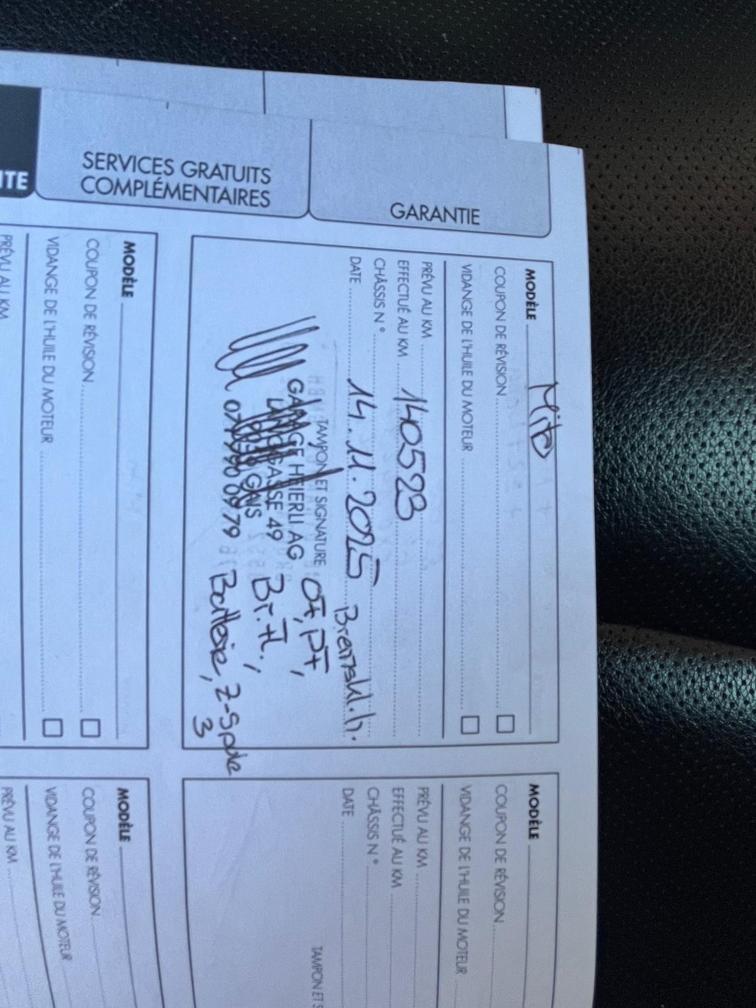 ITE
SERVICES GRATUITS
COMPLÉMENTAIRES
GARANTIE
MODÈLE Mito
COUPON DE RÉVISION
VIDANGE DE L'HUILE DU MOTEUR
PRÉVU AU KM
EFFECTUÉ AU KM 140523
CHÂSSIS N°
DATE 14.11.2025 Bremskl. h.
TAMPON ET SIGNATURE
GARAGE HEIERLI AG
49
GAIS
079
Öf, Pf,
Br. Fl.,
Batterie, Z-Spule
3
MODÈLE
COUPON DE RÉVISION
VIDANGE DE L'HUILE DU MOTEUR
PRÉVU AU KM
EFFECTUÉ AU KM
CHÂSSIS N°
DATE
TAMPON ET S
MODÈLE
COUPON DE RÉVISION
VIDANGE DE L'HUILE DU MOTEUR
PRÉVU AU KM
MODÈLE
COUPON DE RÉVISION
VIDANGE DE L'HUILE DU MOTEUR
PRÉVU AU KM